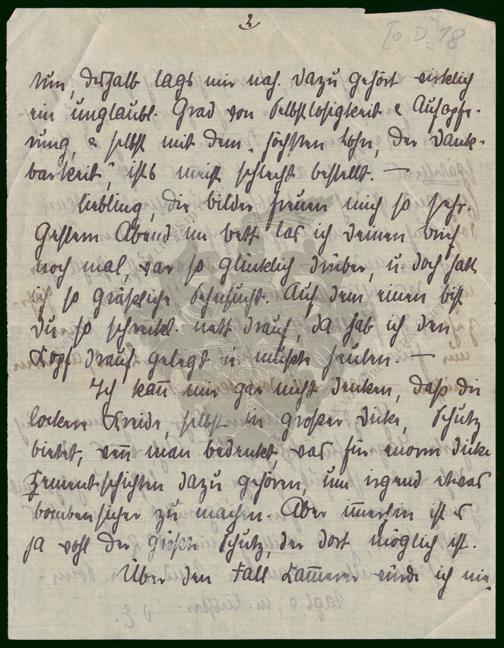 2
[o. D.] 18
Nun, deshalb lags mir nah. Dazu gehört wirklich
ein unglaubl. Grad von Selbstlosigkeit & Aufopfe-
rung, & selbst mit dem „höchsten Lohn, der Dank-
barkeit", ists meist schlecht bestellt. —
Liebling, die Bilder freuen mich so sehr.
Gestern Abend im Bett las ich Deinen Brief
noch mal, war so glücklich drüber, u. doch hatt
ich so gräßliche Sehnsucht. Auf dem einen bist
Du so schreckl. nett drauf, da hab ich den
Kopf drauf gelegt u. mußte heulen. —
Ich kann mir gar nicht denken, daß die
lockere Kreide, selbst in großer Dicke, Schutz
bietet, wenn man bedenkt, was für enorm dicke
Zementschichten dazu gehören, um irgend etwas
bombensicher zu machen. Aber immerhin ist es
ja wohl der größte Schutz, der dort möglich ist.
Über den Fall Kammerer würde ich nie